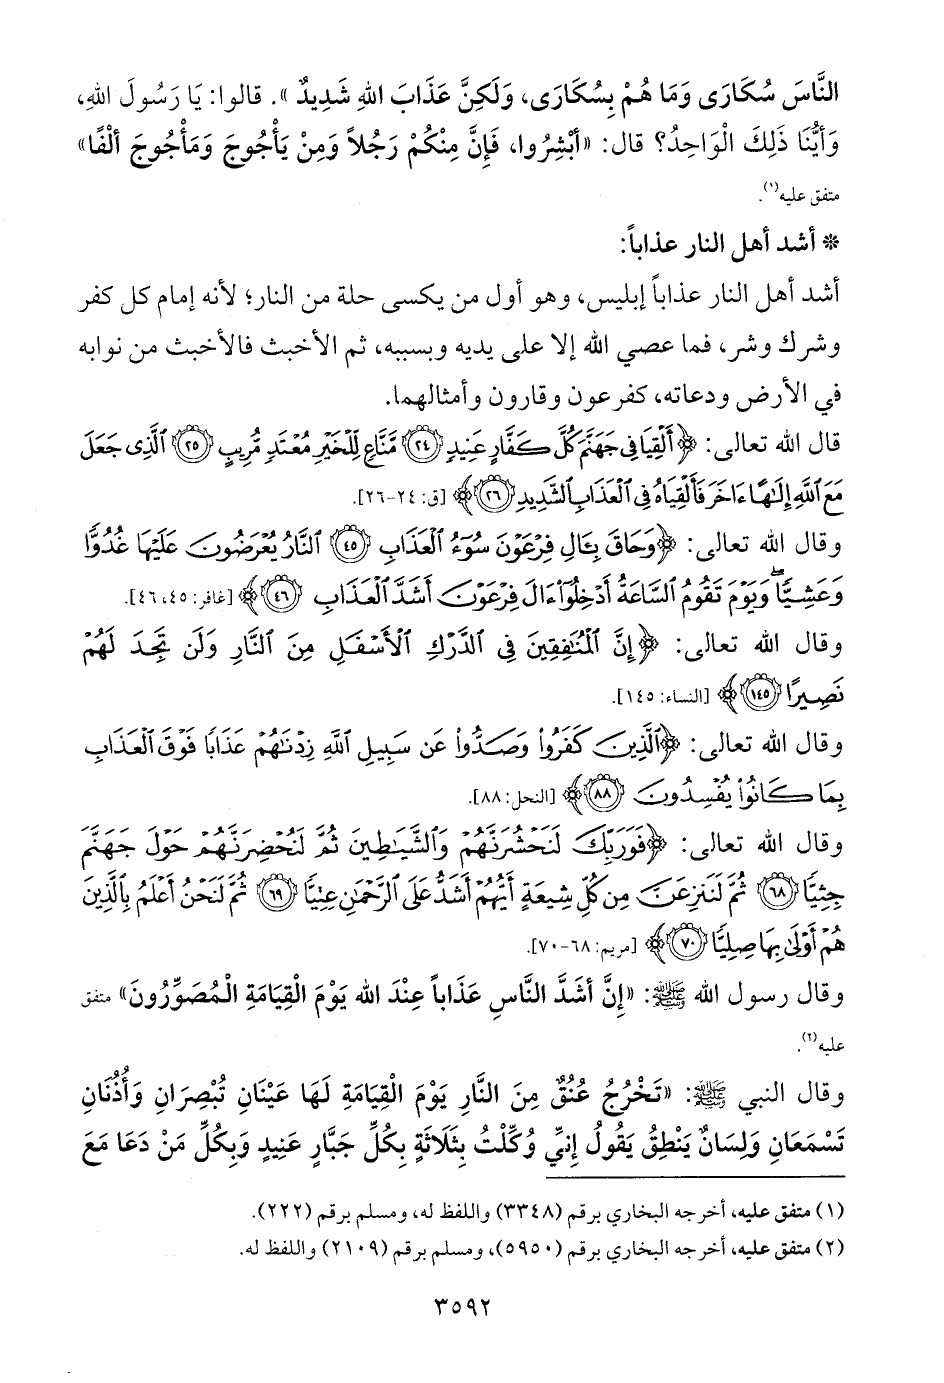 النَّاسَ سُكَارَى وَمَا هُمْ بِسُكَارَى، وَلَكِنَّ عَذَابَ اللهِ شَدِيدٌ». قالوا: يَا رَسُولَ اللهِ،
وَأَيُّنَا ذَلِكَ الْوَاحِدُ؟ قال: «أَبْشِرُوا، فَإِنَّ مِنْكُمْ رَجُلاً وَمِنْ يَأْجُوجَ وَمَأْجُوجَ أَلْفًا»
متفق عليه(١).
* أشد أهل النار عذاباً:
أشد أهل النار عذاباً إبليس، وهو أول من يكسى حلة من النار؛ لأنه إمام كل كفر
وشرك وشر، فما عصي الله إلا على يديه وبسببه، ثم الأخبث فالأخبث من نوابه
في الأرض ودعاته، كفرعون وقارون وأمثالهما.
قال الله تعالى: ﴿أَلْقِيَا فِي جَهَنَّمَ كُلَّ كَفَّارٍ عَنِيدٍ ﴿٢٤﴾ مَّنَّاعٍ لِّلْخَيْرِ مُعْتَدٍ مُّرِيبٍ ﴿٢٥﴾ ٱلَّذِى جَعَلَ
مَعَ ٱللَّهِ إِلَٰهًا ءَاخَرَ فَأَلْقِيَاهُ فِى ٱلْعَذَابِ ٱلشَّدِيدِ ﴿٢٦﴾﴾ [ق: ٢٤-٢٦].
وقال الله تعالى: ﴿وَحَاقَ بِـَٔالِ فِرْعَوْنَ سُوٓءُ ٱلْعَذَابِ ﴿٤٥﴾ ٱلنَّارُ يُعْرَضُونَ عَلَيْهَا غُدُوًّا
وَعَشِيًّا ۖ وَيَوْمَ تَقُومُ ٱلسَّاعَةُ أَدْخِلُوٓا۟ ءَالَ فِرْعَوْنَ أَشَدَّ ٱلْعَذَابِ ﴿٤٦﴾﴾ [غافر: ٤٥، ٤٦].
وقال الله تعالى: ﴿إِنَّ ٱلْمُنَٰفِقِينَ فِى ٱلدَّرْكِ ٱلْأَسْفَلِ مِنَ ٱلنَّارِ وَلَن تَجِدَ لَهُمْ
نَصِيرًا ﴿١٤٥﴾﴾ [النساء: ١٤٥].
وقال الله تعالى: ﴿ٱلَّذِينَ كَفَرُوا۟ وَصَدُّوا۟ عَن سَبِيلِ ٱللَّهِ زِدْنَٰهُمْ عَذَابًا فَوْقَ ٱلْعَذَابِ
بِمَا كَانُوا۟ يُفْسِدُونَ ﴿٨٨﴾﴾ [النحل: ٨٨].
وقال الله تعالى: ﴿فَوَرَبِّكَ لَنَحْشُرَنَّهُمْ وَٱلشَّيَٰطِينَ ثُمَّ لَنُحْضِرَنَّهُمْ حَوْلَ جَهَنَّمَ
جِثِيًّا ﴿٦٨﴾ ثُمَّ لَنَنزِعَنَّ مِن كُلِّ شِيعَةٍ أَيُّهُمْ أَشَدُّ عَلَى ٱلرَّحْمَٰنِ عِتِيًّا ﴿٦٩﴾ ثُمَّ لَنَحْنُ أَعْلَمُ بِٱلَّذِينَ
هُمْ أَوْلَىٰ بِهَا صِلِيًّا ﴿٧٠﴾﴾ [مريم: ٦٨-٧٠].
وقال رسول الله ﷺ: «إِنَّ أَشَدَّ النَّاسِ عَذَاباً عِنْدَ الله يَوْمَ الْقِيَامَةِ الْمُصَوِّرُونَ» متفق
عليه(٢).
وقال النبي ﷺ: «تَخْرُجُ عُنُقٌ مِنَ النَّارِ يَوْمَ الْقِيَامَةِ لَهَا عَيْنَانِ تُبْصِرَانِ وَأُذُنَانِ
تَسْمَعَانِ وَلِسَانٌ يَنْطِقُ يَقُولُ إِنِّي وُكِّلْتُ بِثَلَاثَةٍ بِكُلِّ جَبَّارٍ عَنِيدٍ وَبِكُلِّ مَنْ دَعَا مَعَ
(١) متفق عليه، أخرجه البخاري برقم (٣٣٤٨) واللفظ له، ومسلم برقم (٢٢٢).
(٢) متفق عليه، أخرجه البخاري برقم (٥٩٥٠)، ومسلم برقم (٢١٠٩) واللفظ له.
٣٥٩٢